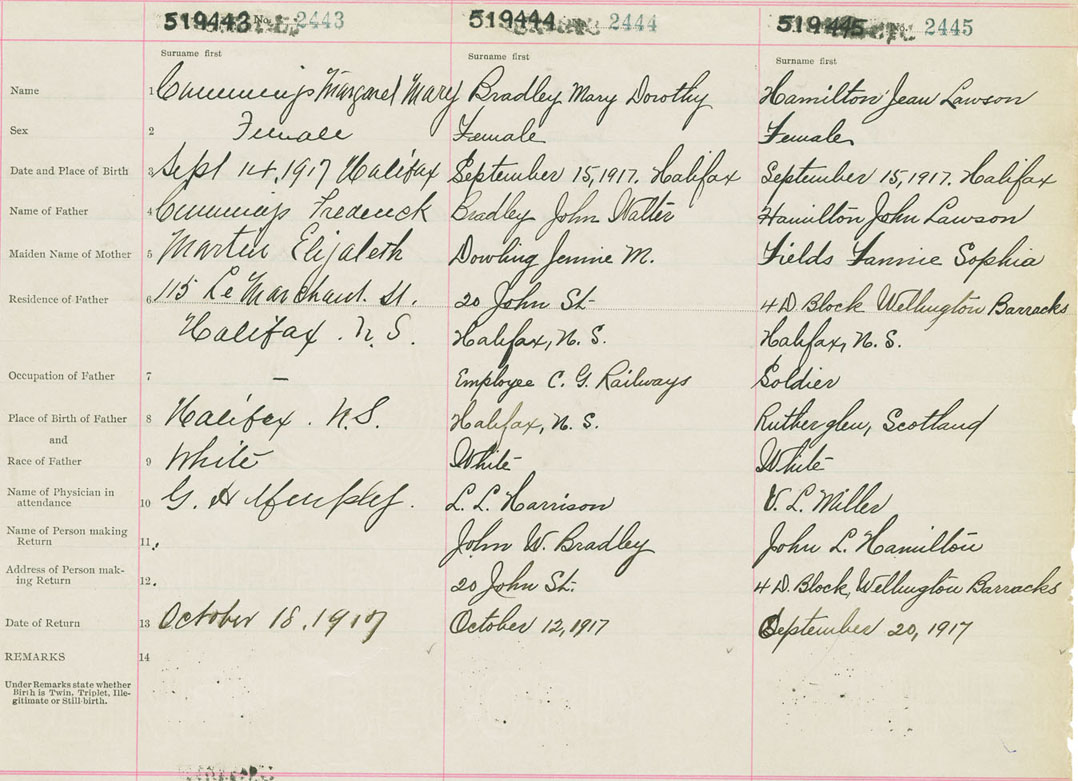 519443 No. 2443 519444 2444 519445 2445
Surname first Surname first Surname first
Name 1 Cummings Margaret Mary Bradley Mary Dorothy Hamilton Jean Lawson
Sex 2 Female Female Female
Date and Place of Birth 3 Sept 14, 1917 Halifax September 15, 1917. Halifax September 15, 1917. Halifax
Name of Father 4 Cummings Frederick Bradley John Walter Hamilton John Lawson
Maiden Name of Mother 5 Martin Elizabeth Dowling Jennie M. Fields Fannie Sophia
Residence of Father 6 115 Le Marchant St. 20 John St. 4 D. Block Wellington Barracks
Halifax. N.S. Halifax, N. S. Halifax, N. S.
Occupation of Father 7 — Employee C. G. Railways Soldier
Place of Birth of Father 8 Halifax. N.S. Halifax, N. S. Rutherglen, Scotland
and
Race of Father 9 White White White
Name of Physician in attendance 10 G. H. L. L. Harrison V. L. Miller
Name of Person making Return 11 John W. Bradley John L. Hamilton
Address of Person mak-ing Return 12 20 John St. 4 D. Block, Wellington Barracks
Date of Return 13 October 18, 1917 October 12, 1917 September 20, 1917
REMARKS 14
Under Remarks state whether
Birth is Twin, Triplet, Ille-
gitimate or Still-birth.